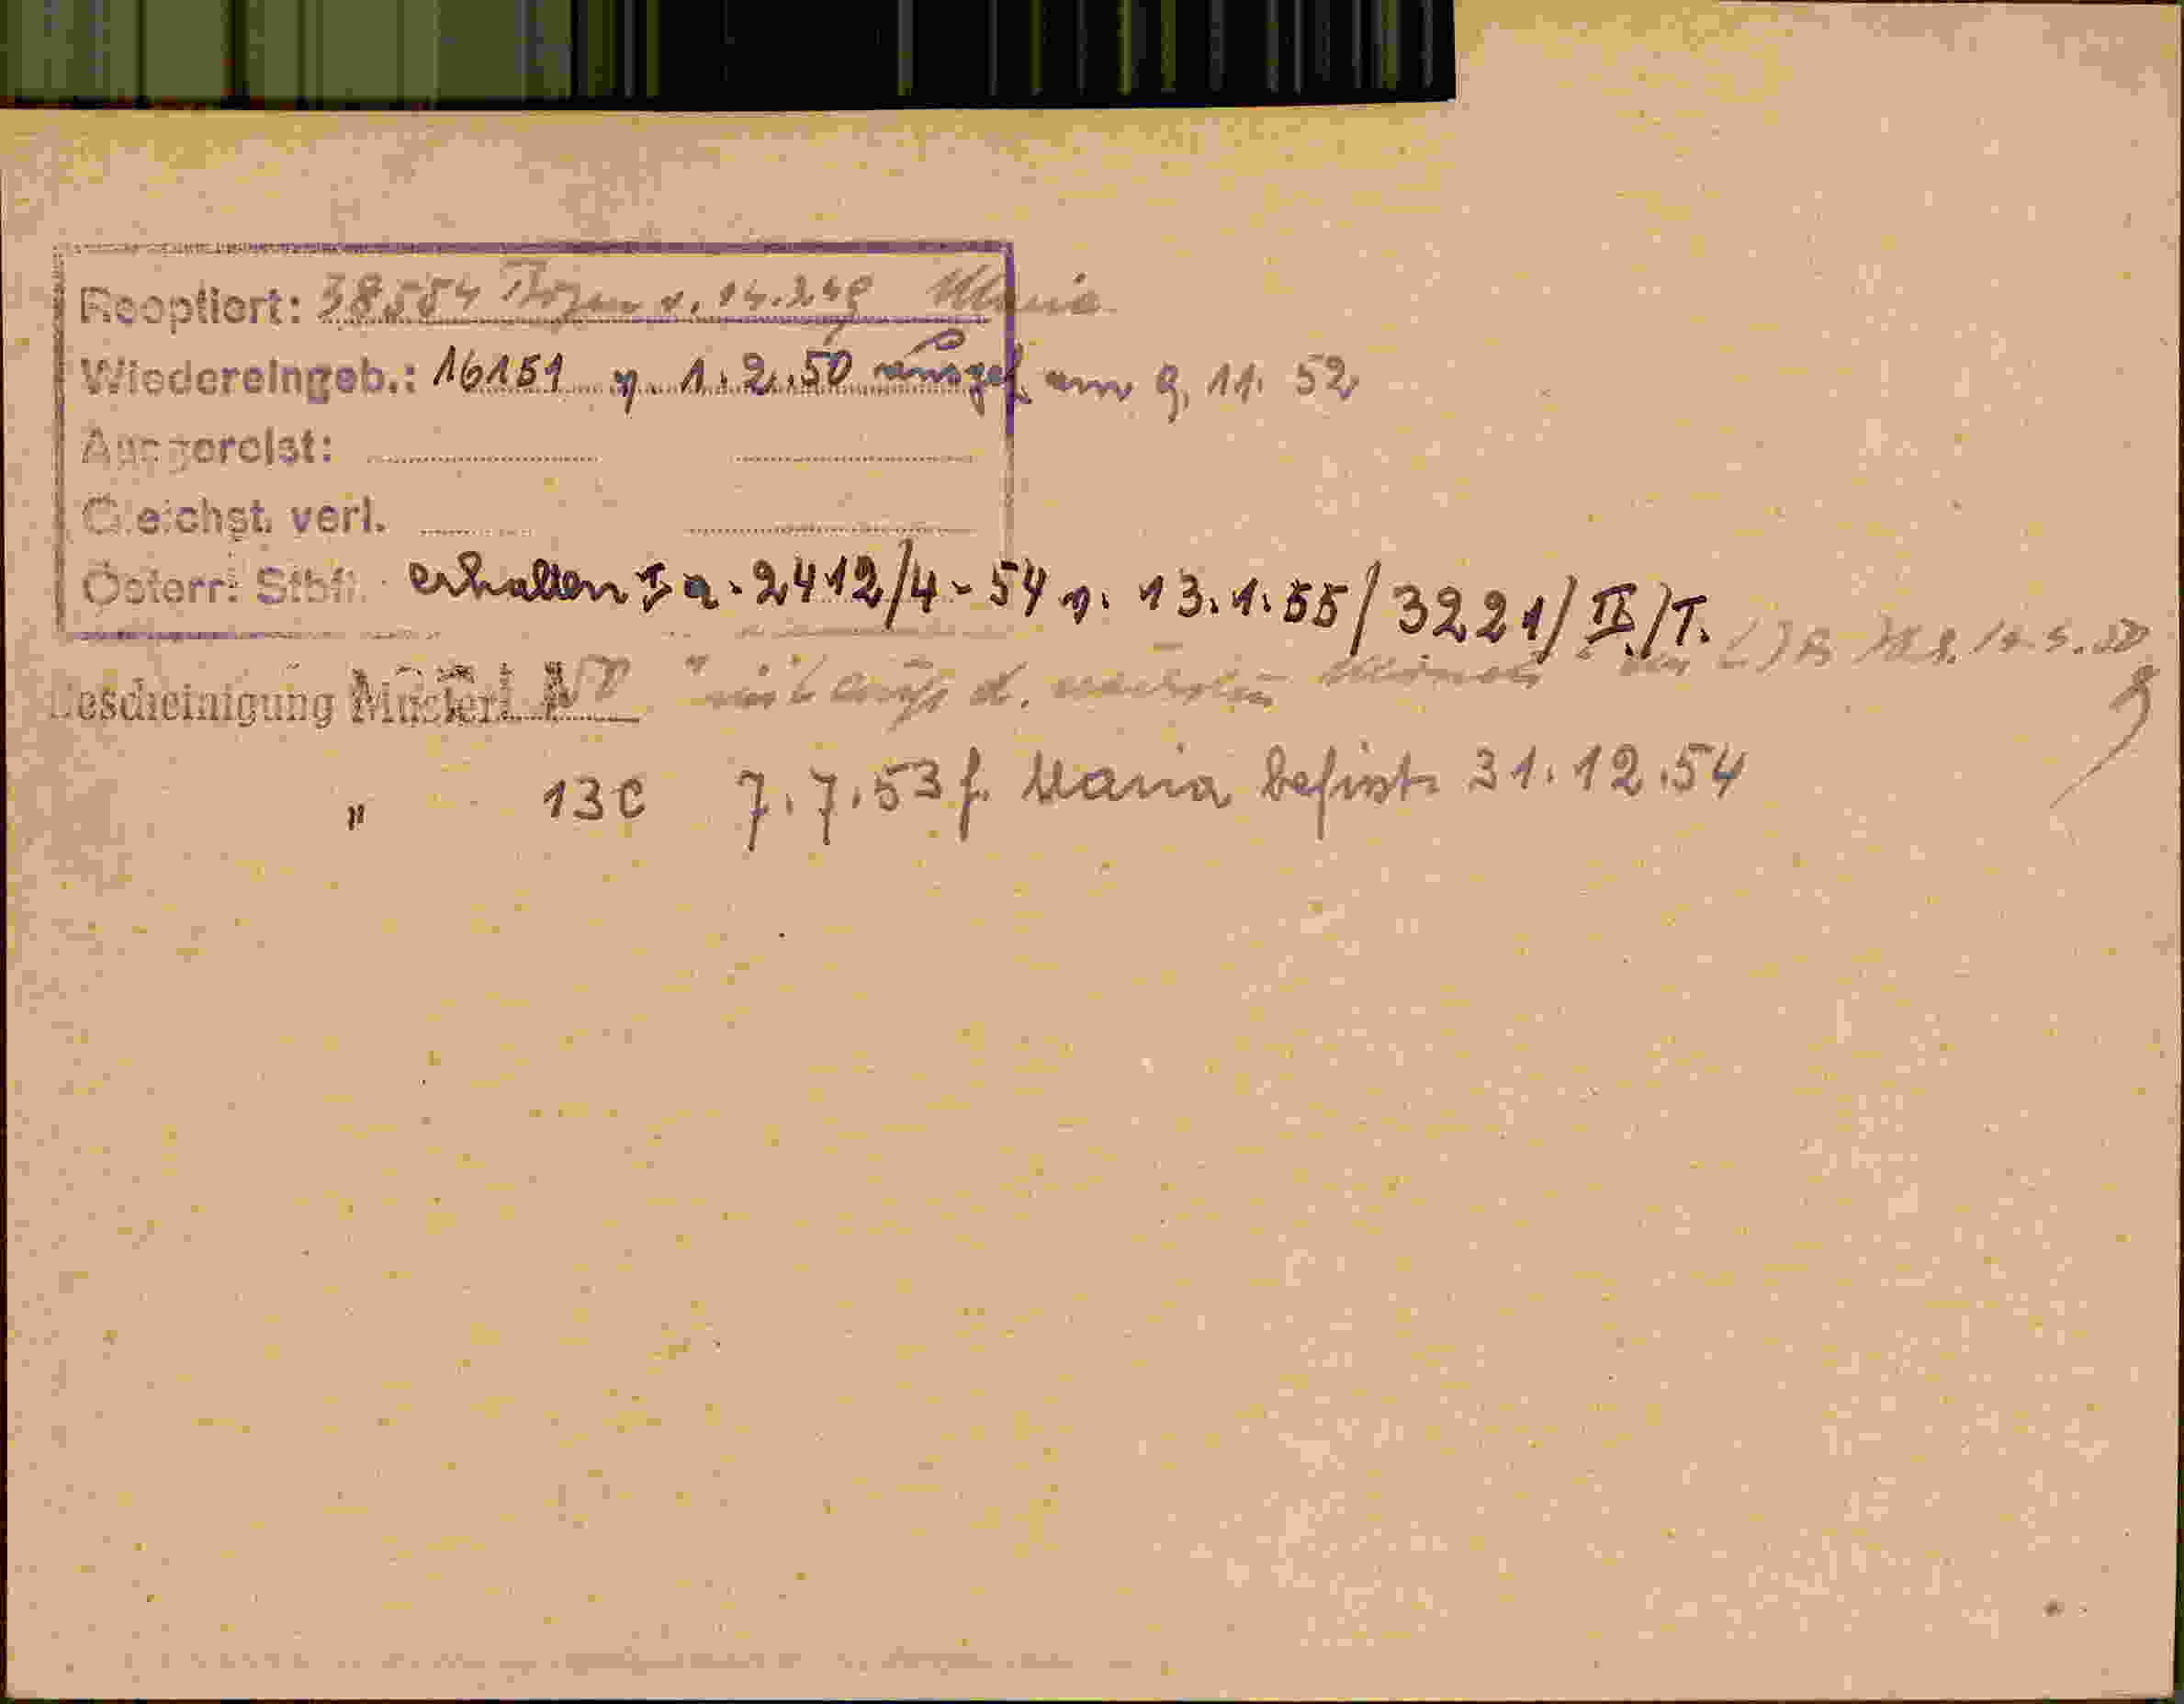 Reoptiert: 38584 Bozen v. 14.2.49 Maria
Wiedereingeb.: 16151 v. 1.2.50 ausgef. am 9.11.52
Ausgereist:
Gleichst. verl.
Österr. Stbft. erhalten I a - 2412/4 - 54 v. 13.1.55/3221/II/T.
Bescheinigung Muster
" 13C 7.7.53 f. Maria befrist. 31.12.54